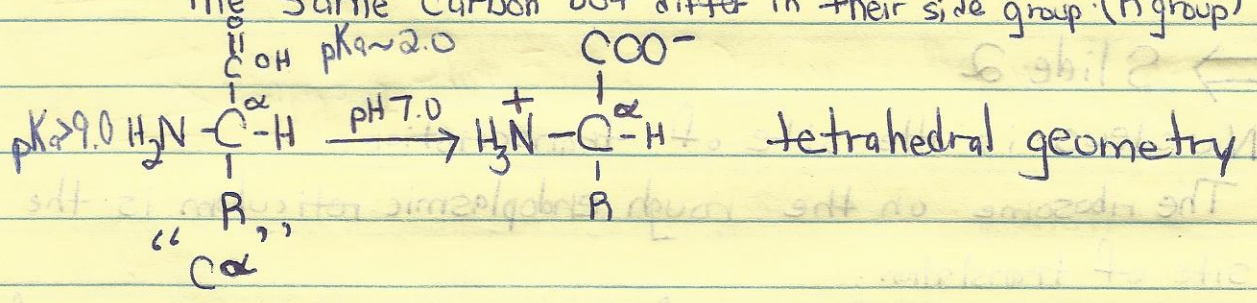 The same carbon but differ in their side group (R group)
O
||
C OH pKa~2.0 COO⁻
| |
pKa>9.0 H₂N – Cα – H pH 7.0 → H₃N⁺ – Cα – H tetrahedral geometry
| |
R R
“Cα”